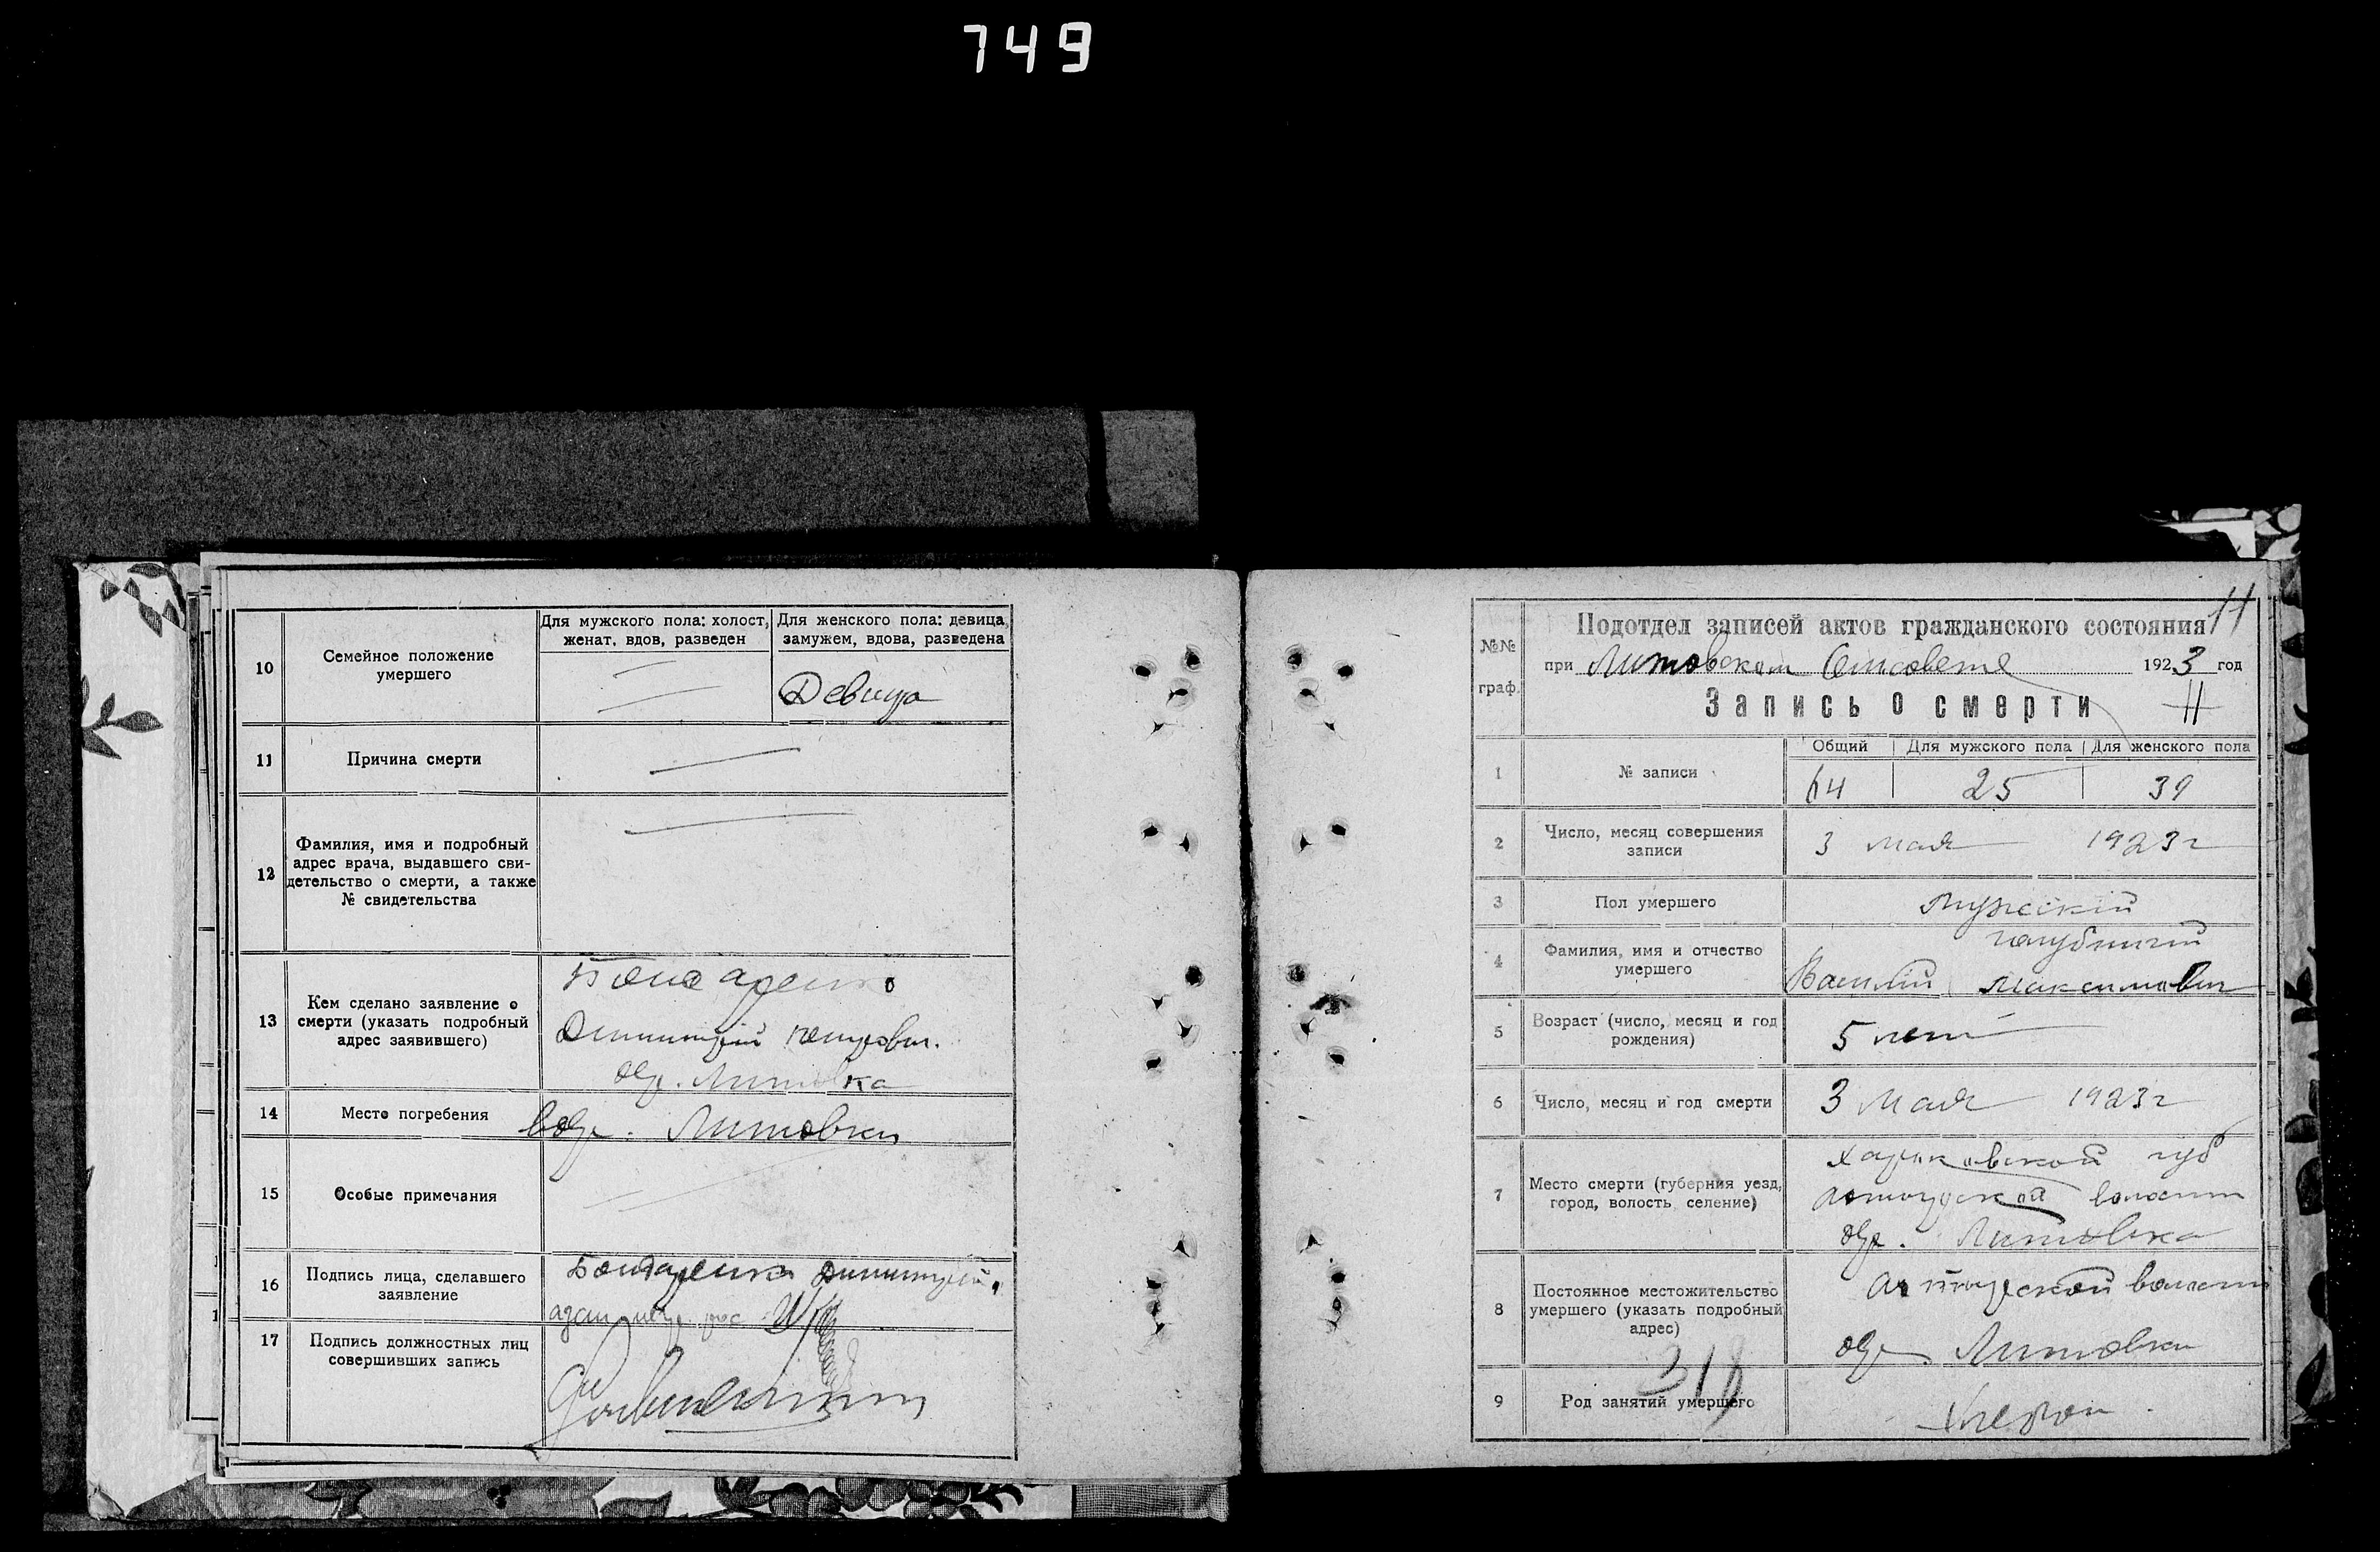 749
10
Семейное положение
умершего
Для мужского пола: холост,
женат, вдов, разведен
Для женского пола: девица,
замужем, вдова, разведена
Девица
11
Причина смерти
12
Фамилия, имя и подробный
адрес врача, выдавшего сви-
детельство о смерти, а также
№ свидетельства
13
Кем сделано заявление о
смерти (указать подробный
адрес заявившего)
Бондаренко
Литовка
14
Место погребения
Литовки
15
Особые примечания
16
Подпись лица, сделавшего
заявление
Бондаренко
17
Подпись должностных лиц
совершивших запись
11
№№
граф.
Подотдел записей актов гражданского состояния
при Литовском 1923 год
Запись о смерти
11
1
№ записи
Общий
Для мужского пола
Для женского пола
64
25
39
2
Число, месяц совершения
записи
3 мая 1923 г
3
Пол умершего
Мужскій
4
Фамилия, имя и отчество
умершего
Василій Максимович
5
Возраст (число, месяц и год
рождения)
5 лет
6
Число, месяц и год смерти
3 Мая 1923 г
7
Место смерти (губерния уезд,
город, волость селение)
Харьковской губ
волости
Литовка
8
Постоянное местожительство
умершего (указать подробный
адрес)
волости
Литовки
9
Род занятий умершего